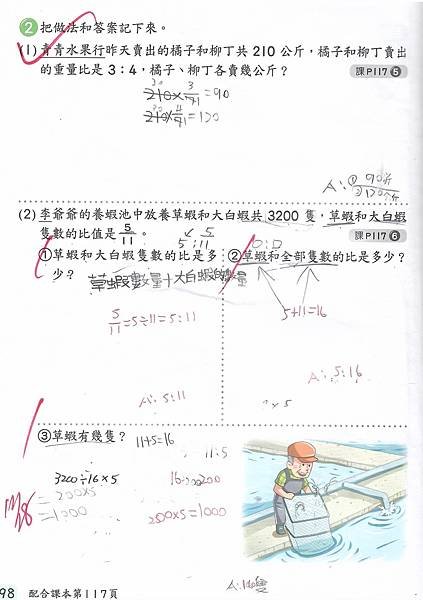 2 把做法和答案記下來。
(1) 青青水果行昨天賣出的橘子和柳丁共 210 公斤,橘子和柳丁賣出
的重量比是 3:4,橘子、柳丁各賣幾公斤?
課P117 5
30
210×3/7=90
30
210×4/7=120
A:① 90公斤
② 120公斤
(2) 李爺爺的養蝦池中放養草蝦和大白蝦共 3200 隻,草蝦和大白蝦
隻數的比值是 5/11。
課P117 6
5:11
①草蝦和大白蝦隻數的比是多
少?
5/11=5÷11=5:11
A:5:11
②草蝦和全部隻數的比是多少?
5+11=16
A:5:16
×5
③草蝦有幾隻?
11+5=16
11:5
3200÷16×5
=200×5
=1000
200×5=1000
98
配合課本第117頁